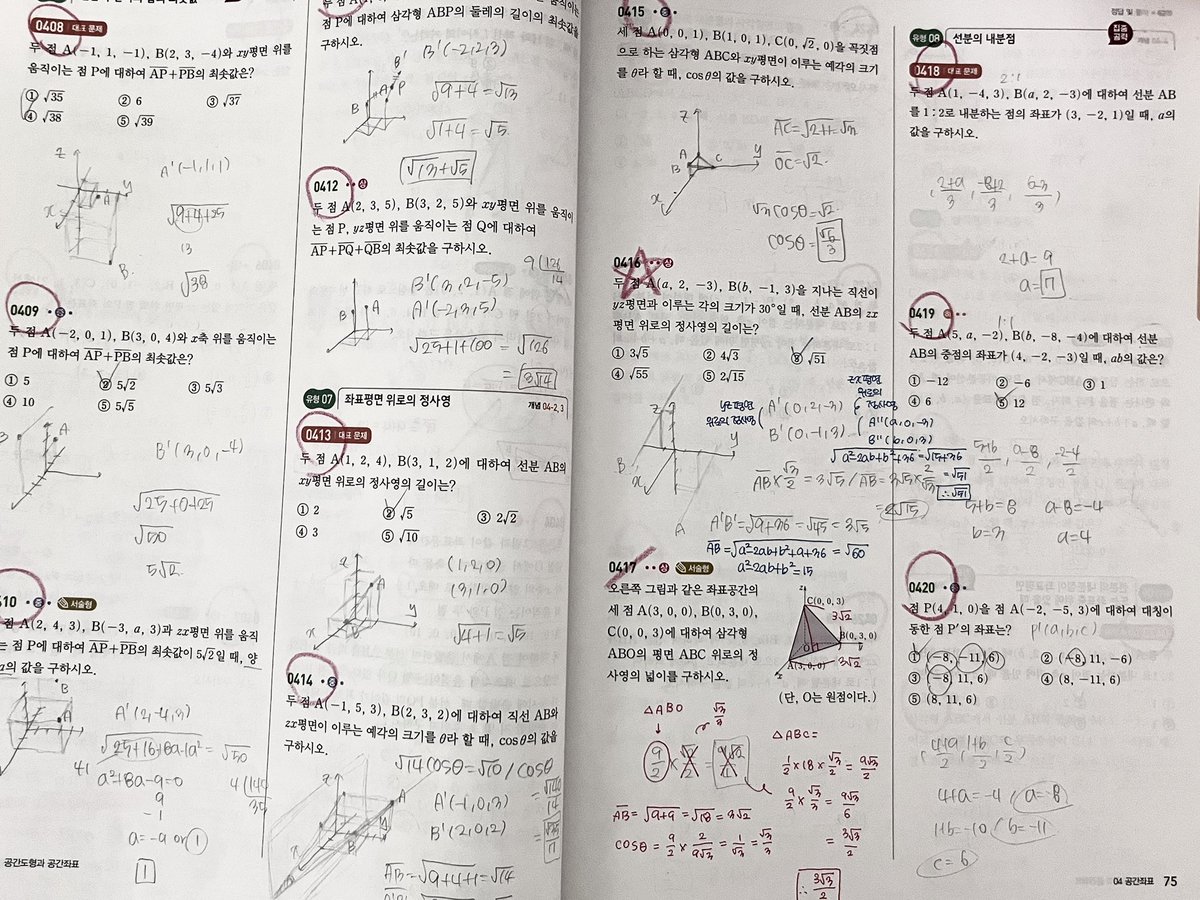 0408 대표 문제
두 점 A(−1, 1, −1), B(2, 3, −4)와 xy평면 위를
움직이는 점 P에 대하여 AP+PB의 최솟값은?
① √35 ② 6 ③ √37
④ √38 ⑤ √39
A'(-1,1,1)
√9+4+25
√38
0409
두 점 A(−2, 0, 1), B(3, 0, 4)와 x축 위를 움직이는
점 P에 대하여 AP+PB의 최솟값은?
① 5 ② 5√2 ③ 5√3
④ 10 ⑤ 5√5
B'(3,0,-4)
√25+0+25
√50
5√2
서술형
A(2, 4, 3), B(−3, a, 3)과 zx평면 위를 움직
점 P에 대하여 AP+PB의 최솟값이 5√2일 때, 양
a의 값을 구하시오.
A'(2,-4,3)
√25+16+8a+a² = √50
a²+8a-9=0
9
-1
a=-9 or 1
1
공간도형과 공간좌표
점 P에 대하여 삼각형 ABP의 둘레의 길이의 최솟값을
구하시오.
B'(-2,2,3)
√9+4 = √13
√1+4 = √5
√13+√5
0412 상
두 점 A(2, 3, 5), B(3, 2, 5)와 xy평면 위를 움직이
는 점 P, yz평면 위를 움직이는 점 Q에 대하여
AP+PQ+QB의 최솟값을 구하시오.
B'(3,2,-5)
A'(-2,3,5)
√25+1+100 = √126
= 3√14
유형 07 좌표평면 위로의 정사영 개념 04-2, 3
0413 대표 문제
두 점 A(1, 2, 4), B(3, 1, 2)에 대하여 선분 AB의
xy평면 위로의 정사영의 길이는?
① 2 ② √5 ③ 2√2
④ 3 ⑤ √10
(1,2,0)
(3,1,0)
√4+1 = √5
0414
두 점 A(−1, 5, 3), B(2, 3, 2)에 대하여 직선 AB와
zx평면이 이루는 예각의 크기를 θ라 할 때, cos θ의 값을
구하시오.
√14 cosθ = √10 / cosθ
= √140/14
A'(-1,0,3)
B'(2,0,2)
= √35/7
AB = √9+4+1 = √14
0415
세 점 A(0, 0, 1), B(1, 0, 1), C(0, √2, 0)을 꼭짓점
으로 하는 삼각형 ABC와 xy평면이 이루는 예각의 크기
를 θ라 할 때, cos θ의 값을 구하시오.
AC = √2+1 = √3
OC = √2
√3 cosθ = √2
cosθ = √6/3
0416 상
두 점 A(a, 2, −3), B(b, −1, 3)을 지나는 직선이
yz평면과 이루는 각의 크기가 30°일 때, 선분 AB의 zx
평면 위로의 정사영의 길이는?
① 3√5 ② 4√3 ③ √51
④ √55 ⑤ 2√15
yz평면 위로의 정사영
A'(0,2,-3)
B'(0,-1,3)
zx평면 위로의 정사영
A''(a,0,-3)
B''(b,0,3)
√a²-2ab+b²+36 = √15+36
= √51
∴ √51
AB × √3/2 = 3√5 / AB = 3√5 × 2/√3
= 2√15
A'B' = √9+36 = √45 = 3√5
AB = √a²-2ab+b²+9+36 = √60
a²-2ab+b² = 15
0417 상 서술형
오른쪽 그림과 같은 좌표공간의
세 점 A(3, 0, 0), B(0, 3, 0),
C(0, 0, 3)에 대하여 삼각형
ABO의 평면 ABC 위로의 정
사영의 넓이를 구하시오.
C(0, 0, 3)
B(0, 3, 0)
A(3, 0, 0)
3√2
3√2
(단, O는 원점이다.)
△ABO
√3/3
△ABC =
1/2 × 18 × √3/2 = 9√3/2
9/2 × √3/3 = 9√3/6
= 3√3/2
AB = √9+9 = √18 = 3√2
cosθ = 9/2 × 2/9√3 = 1/√3 = √3/3
∴ 3√3/2
유형 08 선분의 내분점 집중 공략
0418 대표 문제
두 점 A(1, −4, 3), B(a, 2, −3)에 대하여 선분 AB
를 1 : 2로 내분하는 점의 좌표가 (3, −2, 1)일 때, a의
값을 구하시오.
2+a=9
a=7
0419
1:1
두 점 A(5, a, −2), B(b, −8, −4)에 대하여 선분
AB의 중점의 좌표가 (4, −2, −3)일 때, ab의 값은?
① −12 ② −6 ③ 1
④ 6 ⑤ 12
5+b/2, a-8/2, -2-4/2
5+b=8 a-8=-4
b=3 a=4
0420
점 P(4, 1, 0)을 점 A(−2, −5, 3)에 대하여 대칭이
동한 점 P'의 좌표는? P'(a,b,c)
① (−8, −11, 6) ② (−8, 11, −6)
③ (−8, 11, 6) ④ (8, −11, 6)
⑤ (8, 11, 6)
(4+a/2, 1+b/2, c/2)
4+a=-4 / a=-8
1+b=-10 / b=-11
c=6
04 공간좌표 75